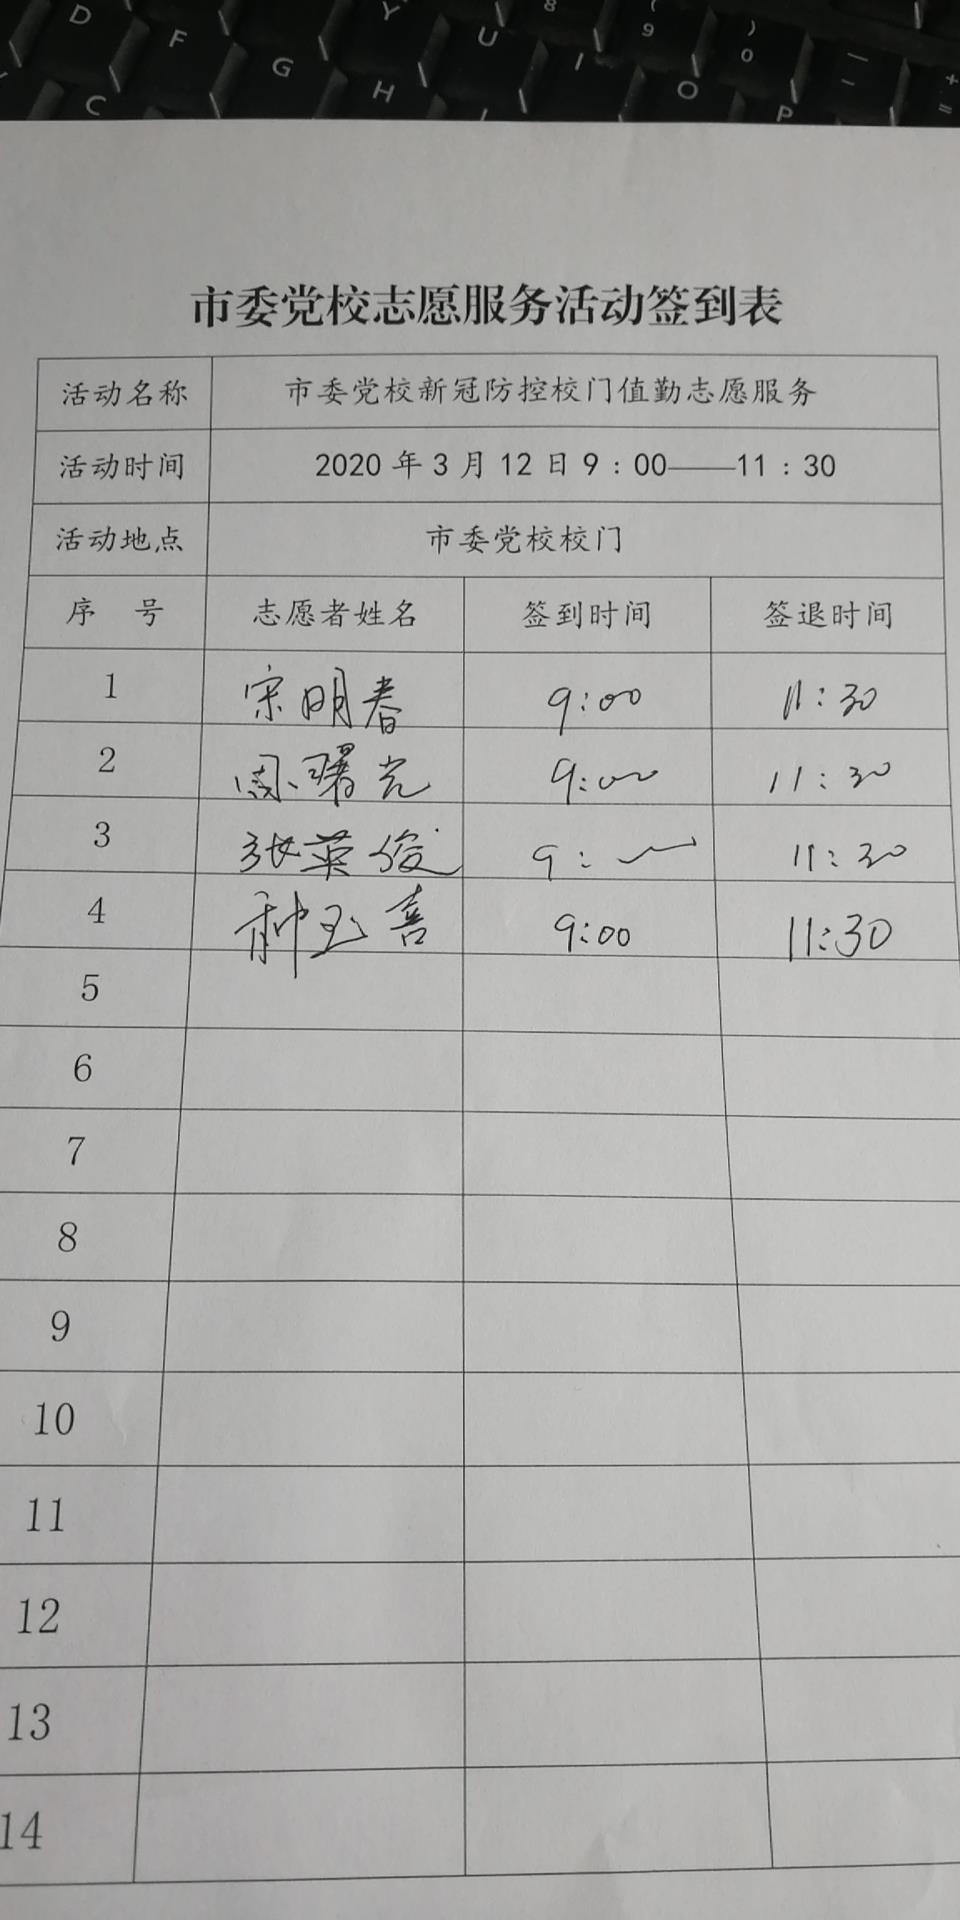 D F G H Y U I O P C 8 ( 9 ) 0 — - + =
市委党校志愿服务活动签到表
活动名称 市委党校新冠防控校门值勤志愿服务
活动时间 2020年3月12日9：00——11：30
活动地点 市委党校校门
序 号 志愿者姓名 签到时间 签退时间
1 宋明春 9:00 11:30
2 周曙光 9:00 11:30
3 张英俊 9: 11:30
4 种玉喜 9:00 11:30
5
6
7
8
9
10
11
12
13
14